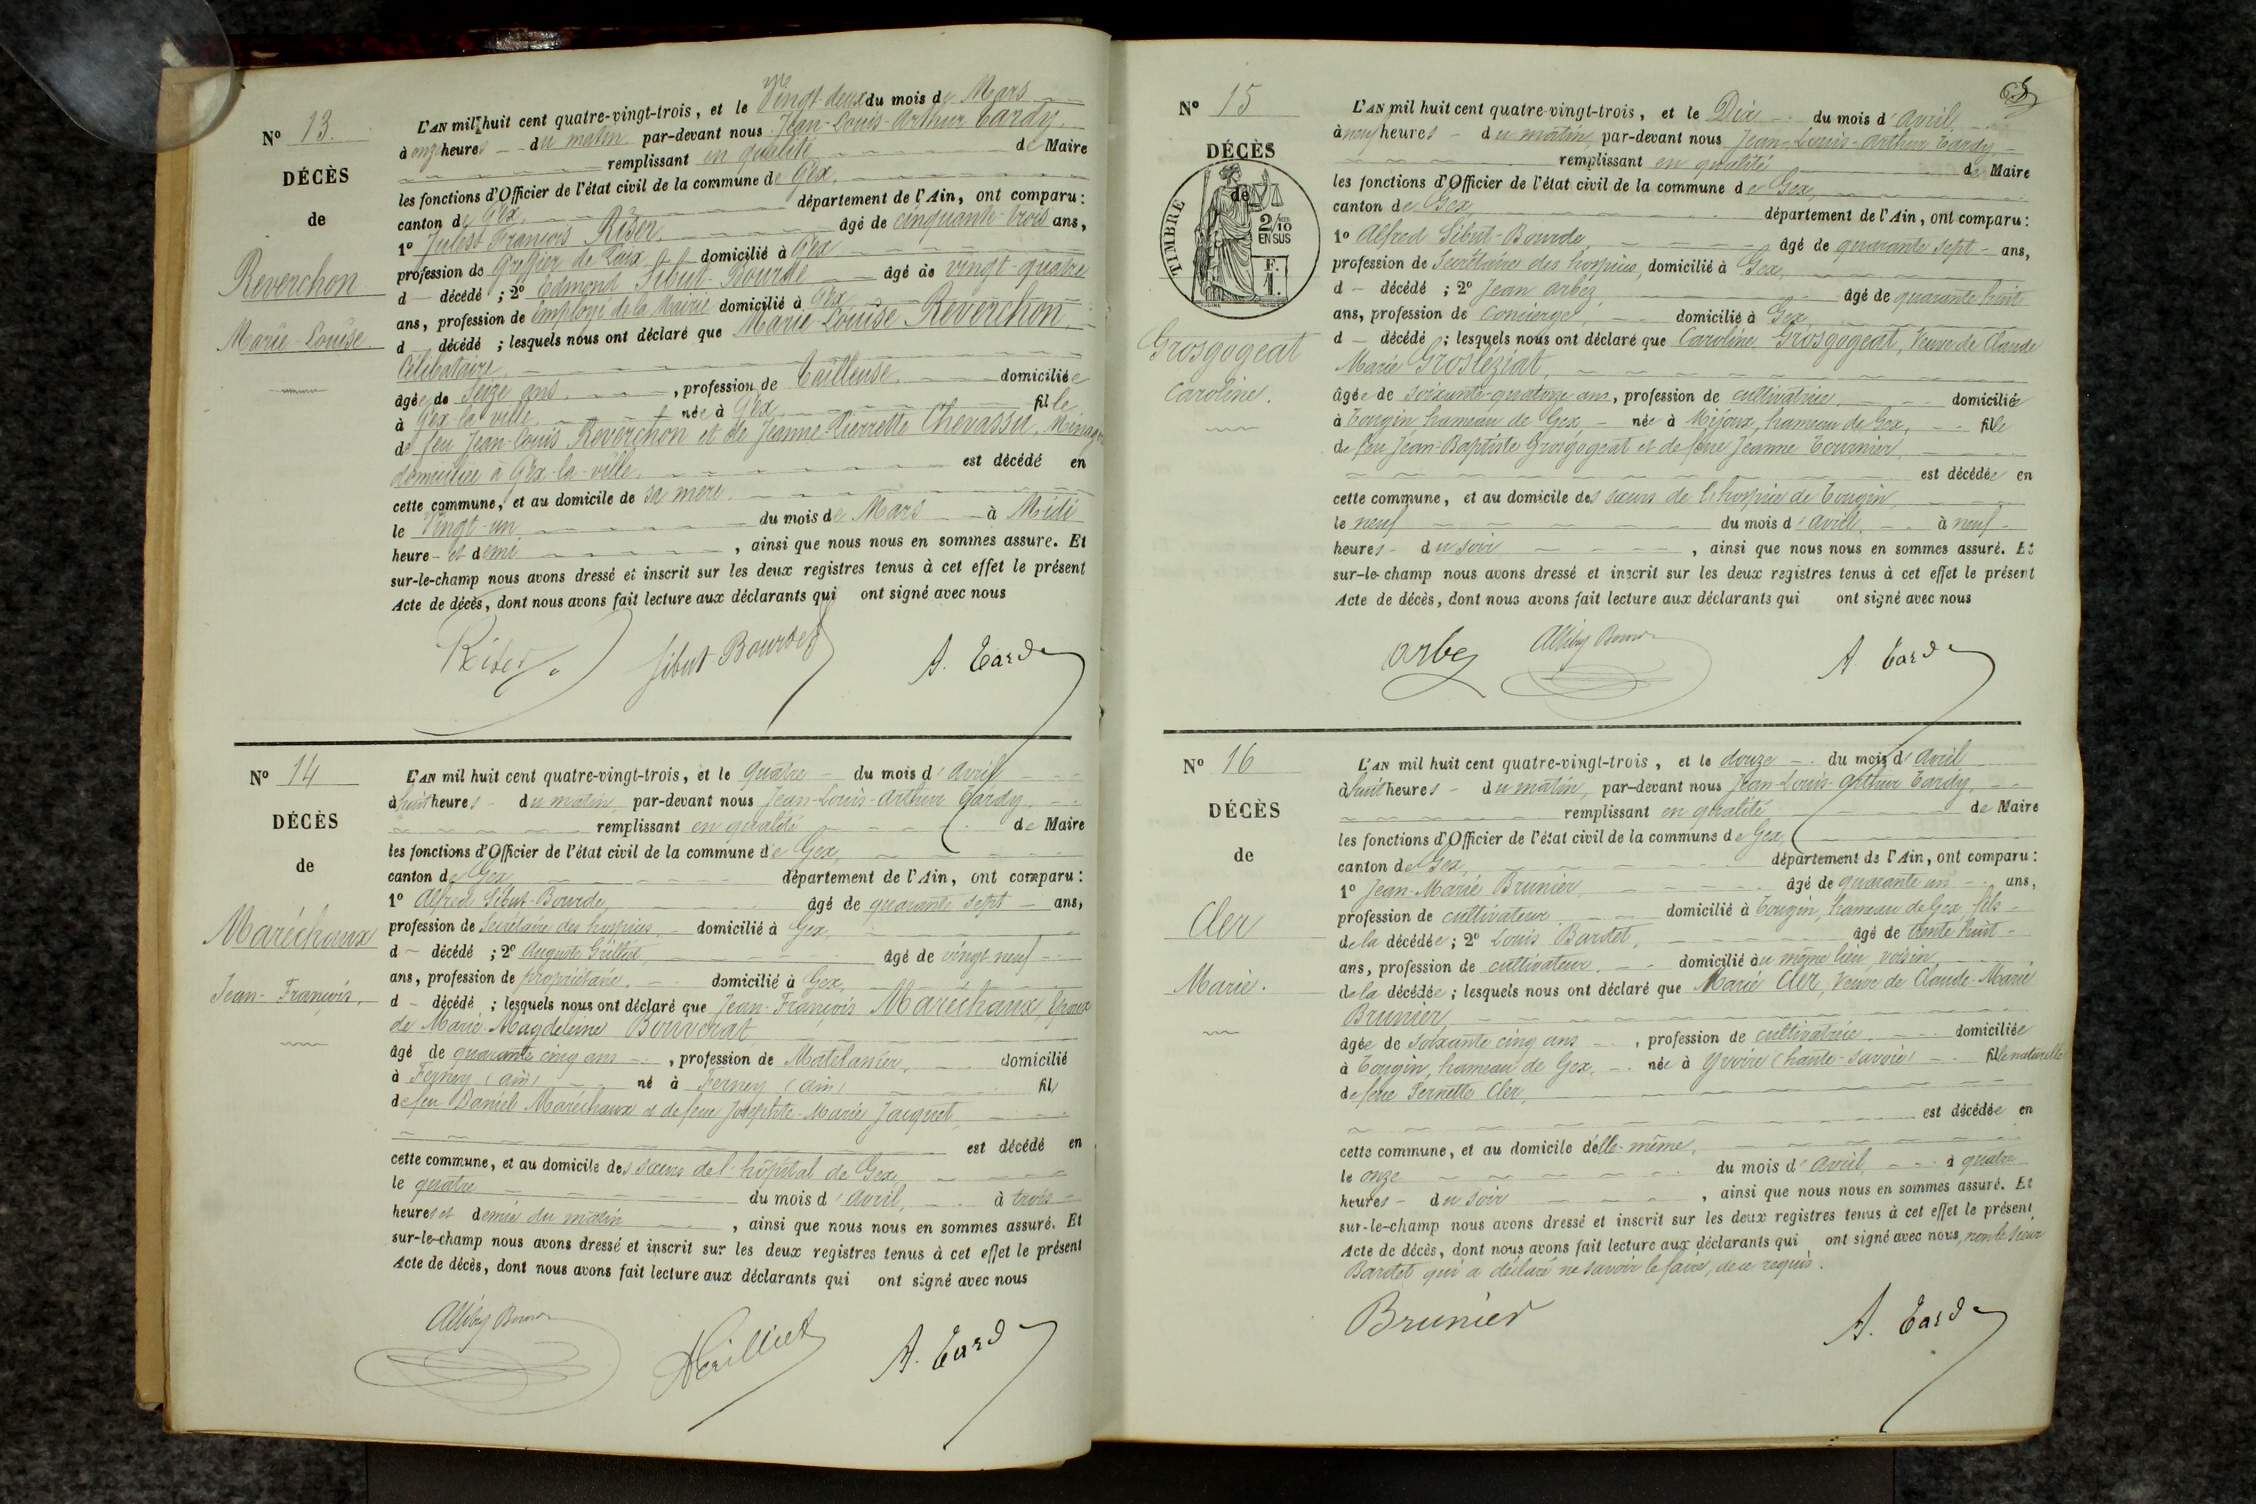 N° 13.
DÉCÈS
de
Reverchon
Marie-Louise
L'AN mil huit cent quatre-vingt-trois, et le Vingt-deux du mois de Mars
à onze heures du matin par-devant nous Jean-Louis-Arthur Tardy.
remplissant en qualité de Maire
les fonctions d'Officier de l'état civil de la commune de Gex.
canton de Gex département de l'Ain, ont comparu :
1° Jules-François Riser, âgé de cinquante-trois ans,
profession de Greffier de Paix domicilié à Gex
d décédé ; 2° Edmond Sibut-Bourde âgé de vingt-quatre
ans, profession de employé de la Mairie domicilié à Gex
d décédé ; lesquels nous ont déclaré que Marie-Louise Reverchon.
Célibataire.
âgée de Seize ans, profession de Tailleuse domiciliée
à Gex-la-ville née à Gex fille
de feu Jean-Louis Reverchon et de Jeanne-Pierrette Chevassu,
domiciliée à Gex-la-ville. est décédé en
cette commune, et au domicile de sa mère.
le Vingt-un du mois de Mars à Midi
heure et demi, ainsi que nous nous en sommes assure. Et
sur-le-champ nous avons dressé et inscrit sur les deux registres tenus à cet effet le présent
Acte de décès, dont nous avons fait lecture aux déclarants qui ont signé avec nous
Riser. Sibut Bourde A. Tardy
N° 14
DÉCÈS
de
Maréchaux
Jean-François.
L'AN mil huit cent quatre-vingt-trois, et le quatre du mois d'avril
à huit heures du matin, par-devant nous Jean-Louis-Arthur Tardy.
remplissant en qualité de Maire
les fonctions d'Officier de l'état civil de la commune de Gex,
canton de Gex département de l'Ain, ont comparu :
1° Alfred Sibut-Bourde, âgé de quarante sept ans,
profession de Secrétaire des hospices, domicilié à Gex,
d décédé ; 2° Auguste âgé de vingt neuf
ans, profession de propriétaire. domicilié à Gex,
d décédé ; lesquels nous ont déclaré que Jean-François Maréchaux, Epoux
de Marie-Magdeleine
âgé de quarante cinq ans, profession de Matelassier, domicilié
à Ferney (ain) né à Ferney (ain) fils
de feu Daniel Maréchaux et de feue Josephte-Marie Jacquet,
est décédé en
cette commune, et au domicile des soeurs de l'hôpital de Gex,
le quatre du mois d'avril, à trois
heures et demie du matin, ainsi que nous nous en sommes assuré. Et
sur-le-champ nous avons dressé et inscrit sur les deux registres tenus à cet effet le présent
Acte de décès, dont nous avons fait lecture aux déclarants qui ont signé avec nous
A. Tardy
N° 15
DÉCÈS
de
TIMBRE
2/10
EN SUS
F.
1.
Grosgogeat
Caroline.
L'AN mil huit cent quatre-vingt-trois, et le Dix du mois d'avril
à neuf heures du matin, par-devant nous Jean-Louis-Arthur Tardy
remplissant en qualité de Maire
les fonctions d'Officier de l'état civil de la commune de Gex,
canton de Gex département de l'Ain, ont comparu :
1° Alfred Sibut-Bourde, âgé de quarante sept ans,
profession de Secrétaire des hospices, domicilié à Gex,
d décédé ; 2° Jean Arbez, âgé de quarante huit
ans, profession de Concierge, domicilié à Gex
d décédé ; lesquels nous ont déclaré que Caroline Grosgogeat, Veuve de Claude
Marie Grosléziat,
âgée de soixante-quatorze ans, profession de cultivatrice, domiciliée
à Tougin, hameau de Gex, née à Mijoux, hameau de Gex, fille
de feu Jean-Baptiste Grosgogeat et de feue Jeanne Tournier,
est décédée en
cette commune, et au domicile des soeurs de l'hospice de Tougin,
le neuf du mois d'avril, à neuf
heures du soir, ainsi que nous nous en sommes assuré. Et
sur-le-champ nous avons dressé et inscrit sur les deux registres tenus à cet effet le présent
Acte de décès, dont nous avons fait lecture aux déclarants qui ont signé avec nous
Arbez A. Tardy
N° 16
DÉCÈS
de
Cler
Marie.
L'AN mil huit cent quatre-vingt-trois, et le douze du mois d'avril
à huit heures du matin, par-devant nous Jean-Louis-Arthur Tardy,
remplissant en qualité de Maire
les fonctions d'Officier de l'état civil de la commune de Gex,
canton de Gex, département de l'Ain, ont comparu :
1° Jean-Marie Brunier âgé de quarante un ans,
profession de cultivateur domicilié à Tougin, hameau de Gex, fils
de la décédée ; 2° Louis Bardet, âgé de trente huit
ans, profession de cultivateur. domicilié au même lieu, voisin,
de la décédée ; lesquels nous ont déclaré que Marie Cler, Veuve de Claude-Marie
Brunier,
âgée de soixante cinq ans, profession de cultivatrice domiciliée
à Tougin, hameau de Gex, née à Yvoire (haute-savoie) fille naturelle
de feue Pernette Cler,
est décédée en
cette commune, et au domicile d'elle-même,
le onze du mois d'avril, à quatre
heures du soir, ainsi que nous nous en sommes assuré. Et
sur-le-champ nous avons dressé et inscrit sur les deux registres tenus à cet effet le présent
Acte de décès, dont nous avons fait lecture aux déclarants qui ont signé avec nous, non le sieur
Bardet qui a déclaré ne savoir le faire, de ce requis.
Brunier A. Tardy